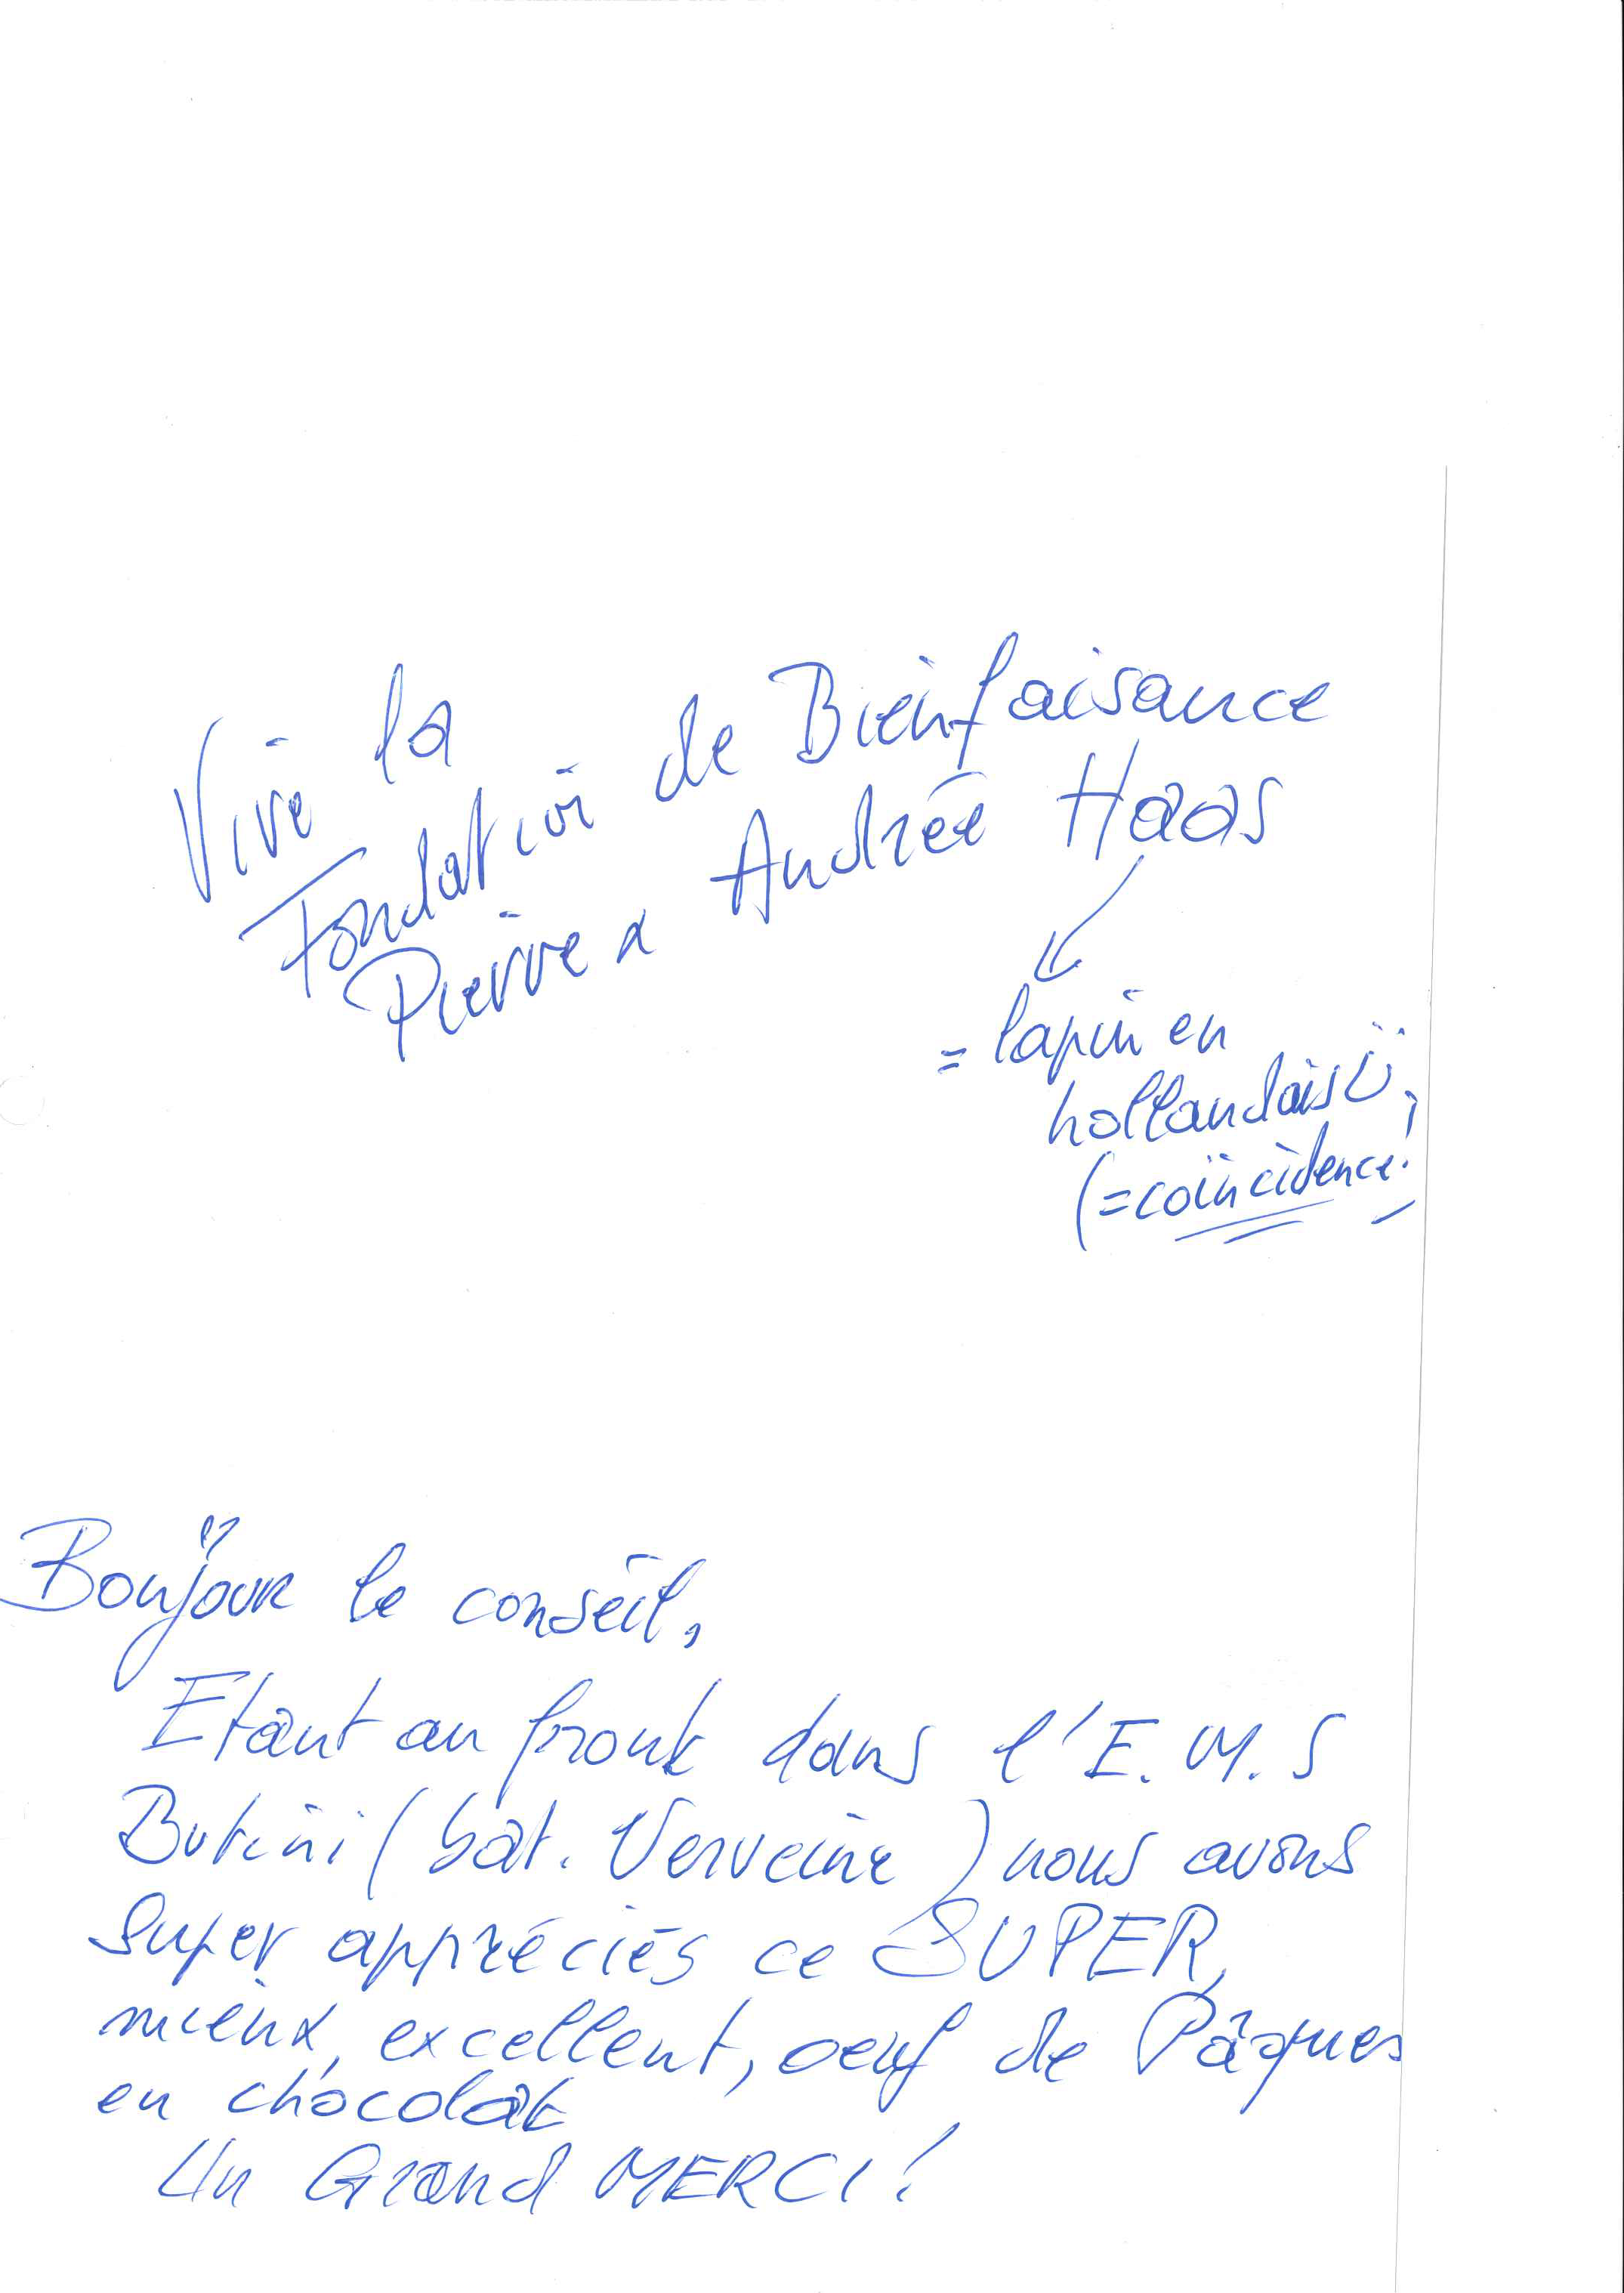 Vive la
Fondation de Bienfaisance
Pierre & Andrée Haas
= lapin en
hollandais Ü,
(= coïncidence!)
Bonjour le conseil,
Etant au front dans l'E.M.S
Butini (bat. Verveine) nous avons
super appréciés ce SUPER,
mieux, excellent, oeuf de Pâques
en chocolat
Un Grand MERCI!